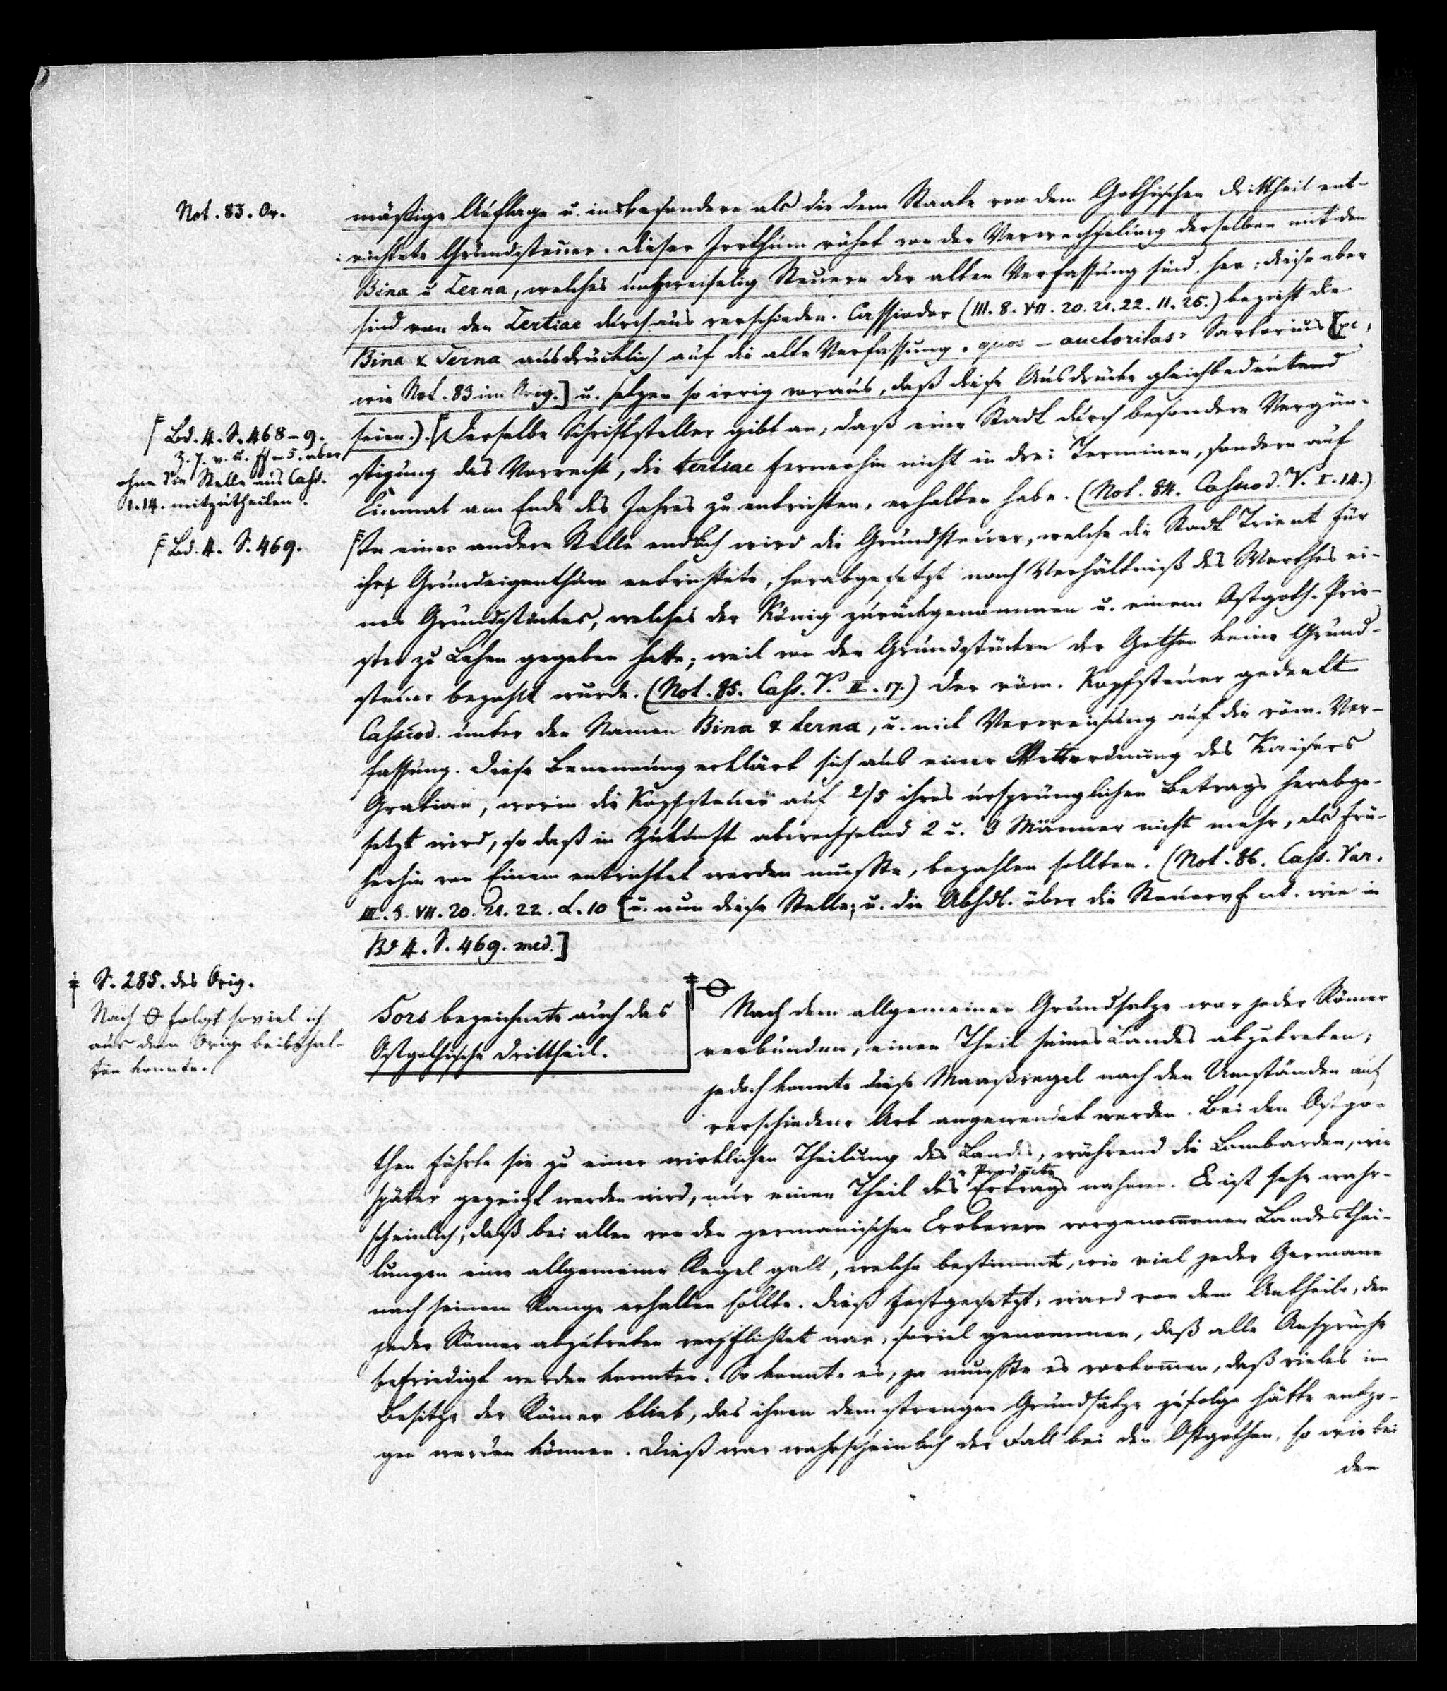 Not. 83. Or.
mäßige Auflage u. insbesondere als die dem Staate von dem Gothischen Drittheil ent-
richtete Grundsteuer. Dieser Irrthum rührt von der Verwechselung derselben mit den
Bina u Terna, welches unzweifelig Steuern der alten Verfassung sind, her; diese aber
sind von den Tertiae durchaus verschieden. Cassiodor (III. 8. VII. 20. 21. 22. 11. 26.) bezieht die
Bina & Terna ausdrücklich auf die alte Verfassung. - auctoritas. Sartorius [pc,
wie Not. 83 im Orig.] u. setzen so irrig voraus, daß diese Ausdrücke gleichbedeutend
seien.). Derselbe Schriftsteller gibt an, daß eine Stadt durch besondere Vergün-
stigung das Vorrecht, die tertiae fernerhin nicht in drei Terminen, sondern auf
Einmal am Ende des Jahres zu entrichten, erhalten habe. (Not. 84. Cassiod. V. I. 14.)
Bd. 4. S. 468-9.
Z. 7. v. u. ff - 5. aber
ohne die Stelle aus Cass.
I. 14. mitzutheilen.
Bd. 4. S. 469.
In einer andern Stelle endlich wird die Grundsteuer, welche die Stadt Trient für
ihr Grundeigenthum entrichtete, herabgesetzt nach Verhältniß des Werthes ei-
nes Grundstückes, welches der König zurückgenommen u. einem Ostgoth. Prie-
ster zu Lehen gegeben hatte; weil von den Grundstücken der Gothen keine Grund-
steuer bezahlt wurde. (Not. 85. Cass. V. II. 17.) Der röm. Kopfsteuer gedenkt
Cassiod. unter den Namen Bina & terna, u. mit Verweisung auf die röm. Ver-
fassung. Diese Benennung erklärt sich aus einer Verordnung des Kaisers
Gratian, worin die Kopfsteuer auf 2/5 ihres ursprünglichen Betrags herabge-
setzt wird, so daß in Zukunft abwechselnd 2 u. 3 Männer nicht mehr, als frü-
herhin von Einem entrichtet werden mußte, bezahlen sollten. (Not. 86. Cass. Var.
III. 8. VII. 20. 21. 22. L. 10 [u. nun diese Stelle; u. die Abhdl. über die Steuervf. wie in
Bd 4. S. 469. med.]
S. 285. des Orig.
Nach folgt soviel ich
aus dem Orig. beibehal-
ten konnte.
Sors bezeichnete auch das
Ostgothische Drittheil.
Nach dem allgemeinen Grundsatze war jeder Römer
verbunden, einen Theil seines Landes abzutreten;
jedoch konnte diese Maaßregel nach den Umständen auf
verschiedene Art angewendet werden. Bei den Ostgo-
then führte sie zu einer wirklichen Theilung des Landes, während die Lombarden, wie
Products
später gezeigt werden wird, nur einen Theil des Ertrags nahmen. Es ist sehr wahr-
scheinlich, daß bei allen von den germanischen Eroberern vorgenommenen Landesthei-
lungen eine allgemeine Regel galt, welche bestimmte, wie viel jeder Germane
nach seinem Range erhalten sollte. Dieß festgesetzt, ward von dem Antheile, den
jeder Römer abzutreten verpflichtet war, soviel genommen, daß alle Ansprüche
befriedigt werden konnten. So konnte es, ja mußte es vorkommen, daß vieles im
Besitze der Römer blieb, das ihnen dem strengen Grundsatze zufolge hätte entzo-
gen werden können. Dieß war wahrscheinlich der Fall bei den Ostgothen, so wie bei
den